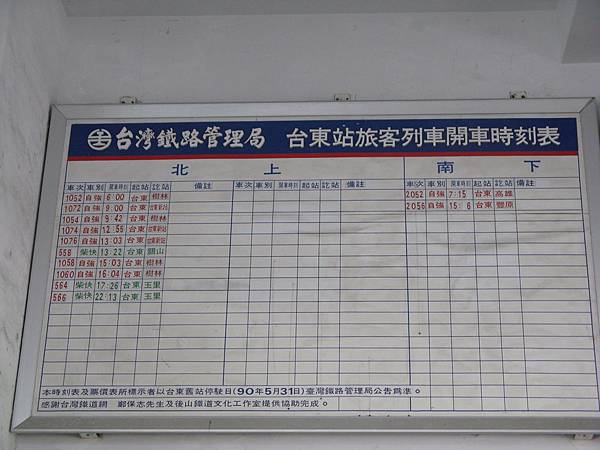 台灣鐵路管理局 台東站旅客列車開車時刻表
北上 南下
車次 車別 開車時刻 起站 訖站 備註 車次 車別 開車時刻 起站 訖站 備註 車次 車別 開車時刻 起站 訖站 備註
1052 自強 6:00 台東 樹林 2052 自強 7:15 台東 高雄
1072 自強 9:00 台東 2056 自強 15:6 台東 豐原
1054 自強 9:42 台東 樹林
1074 自強 12:55 台東
1076 自強 13:03 台東
558 柴快 13:22 台東 關山
1058 自強 15:03 台東 樹林
1060 自強 16:04 台東 樹林
564 柴快 17:26 台東 玉里
566 柴快 22:13 台東 玉里
本時刻表及票價表所標示者以台東舊站停駛日(90年5月31日)臺灣鐵路管理局公告為準。
感謝台灣鐵道網 鄭保志先生及後山鐵道文化工作室提供協助完成。